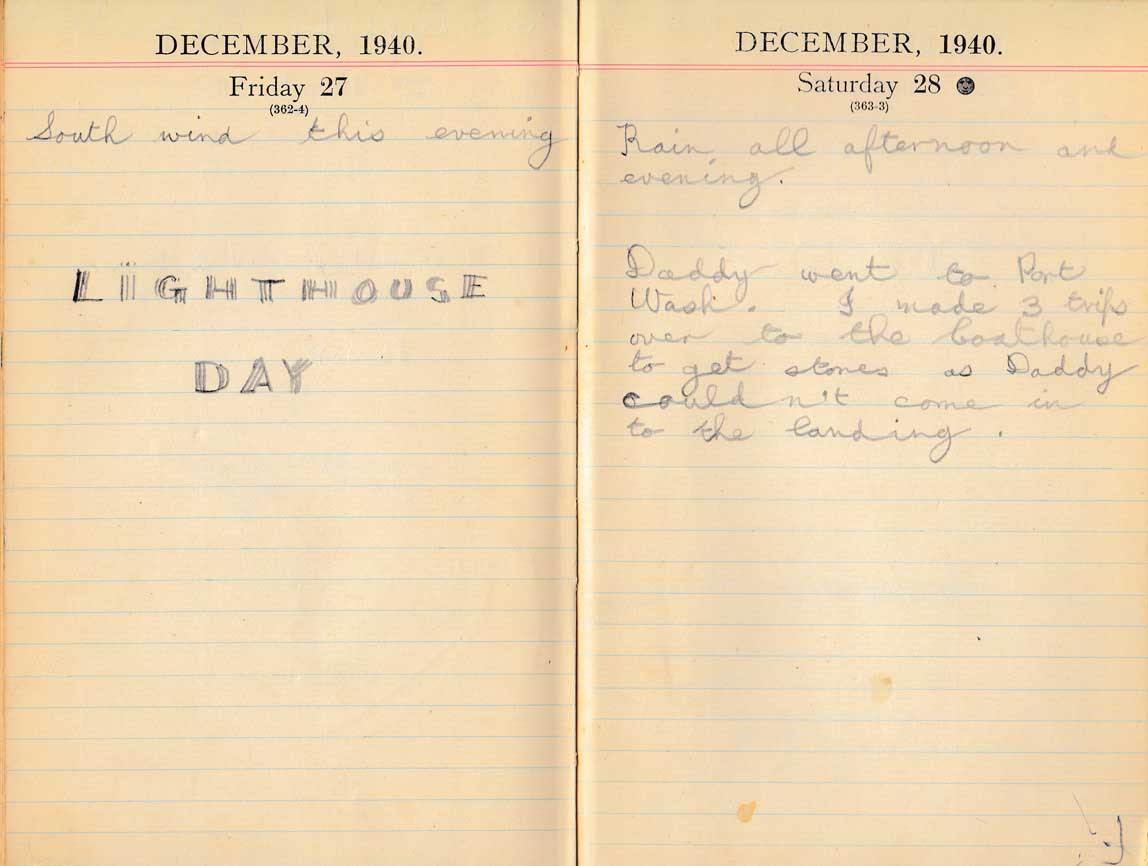 DECEMBER, 1940.
Friday 27
(362-4)
South wind this evening
LIGHTHOUSE
DAY
DECEMBER, 1940.
Saturday 28
(363-3)
Rain all afternoon and
evening.
Daddy went to Port
Wash. I made 3 trips
over to the boathouse
to get stones as Daddy
couldn't come in
to the landing.